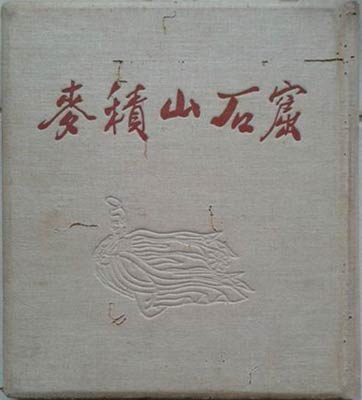 麥積山石窟